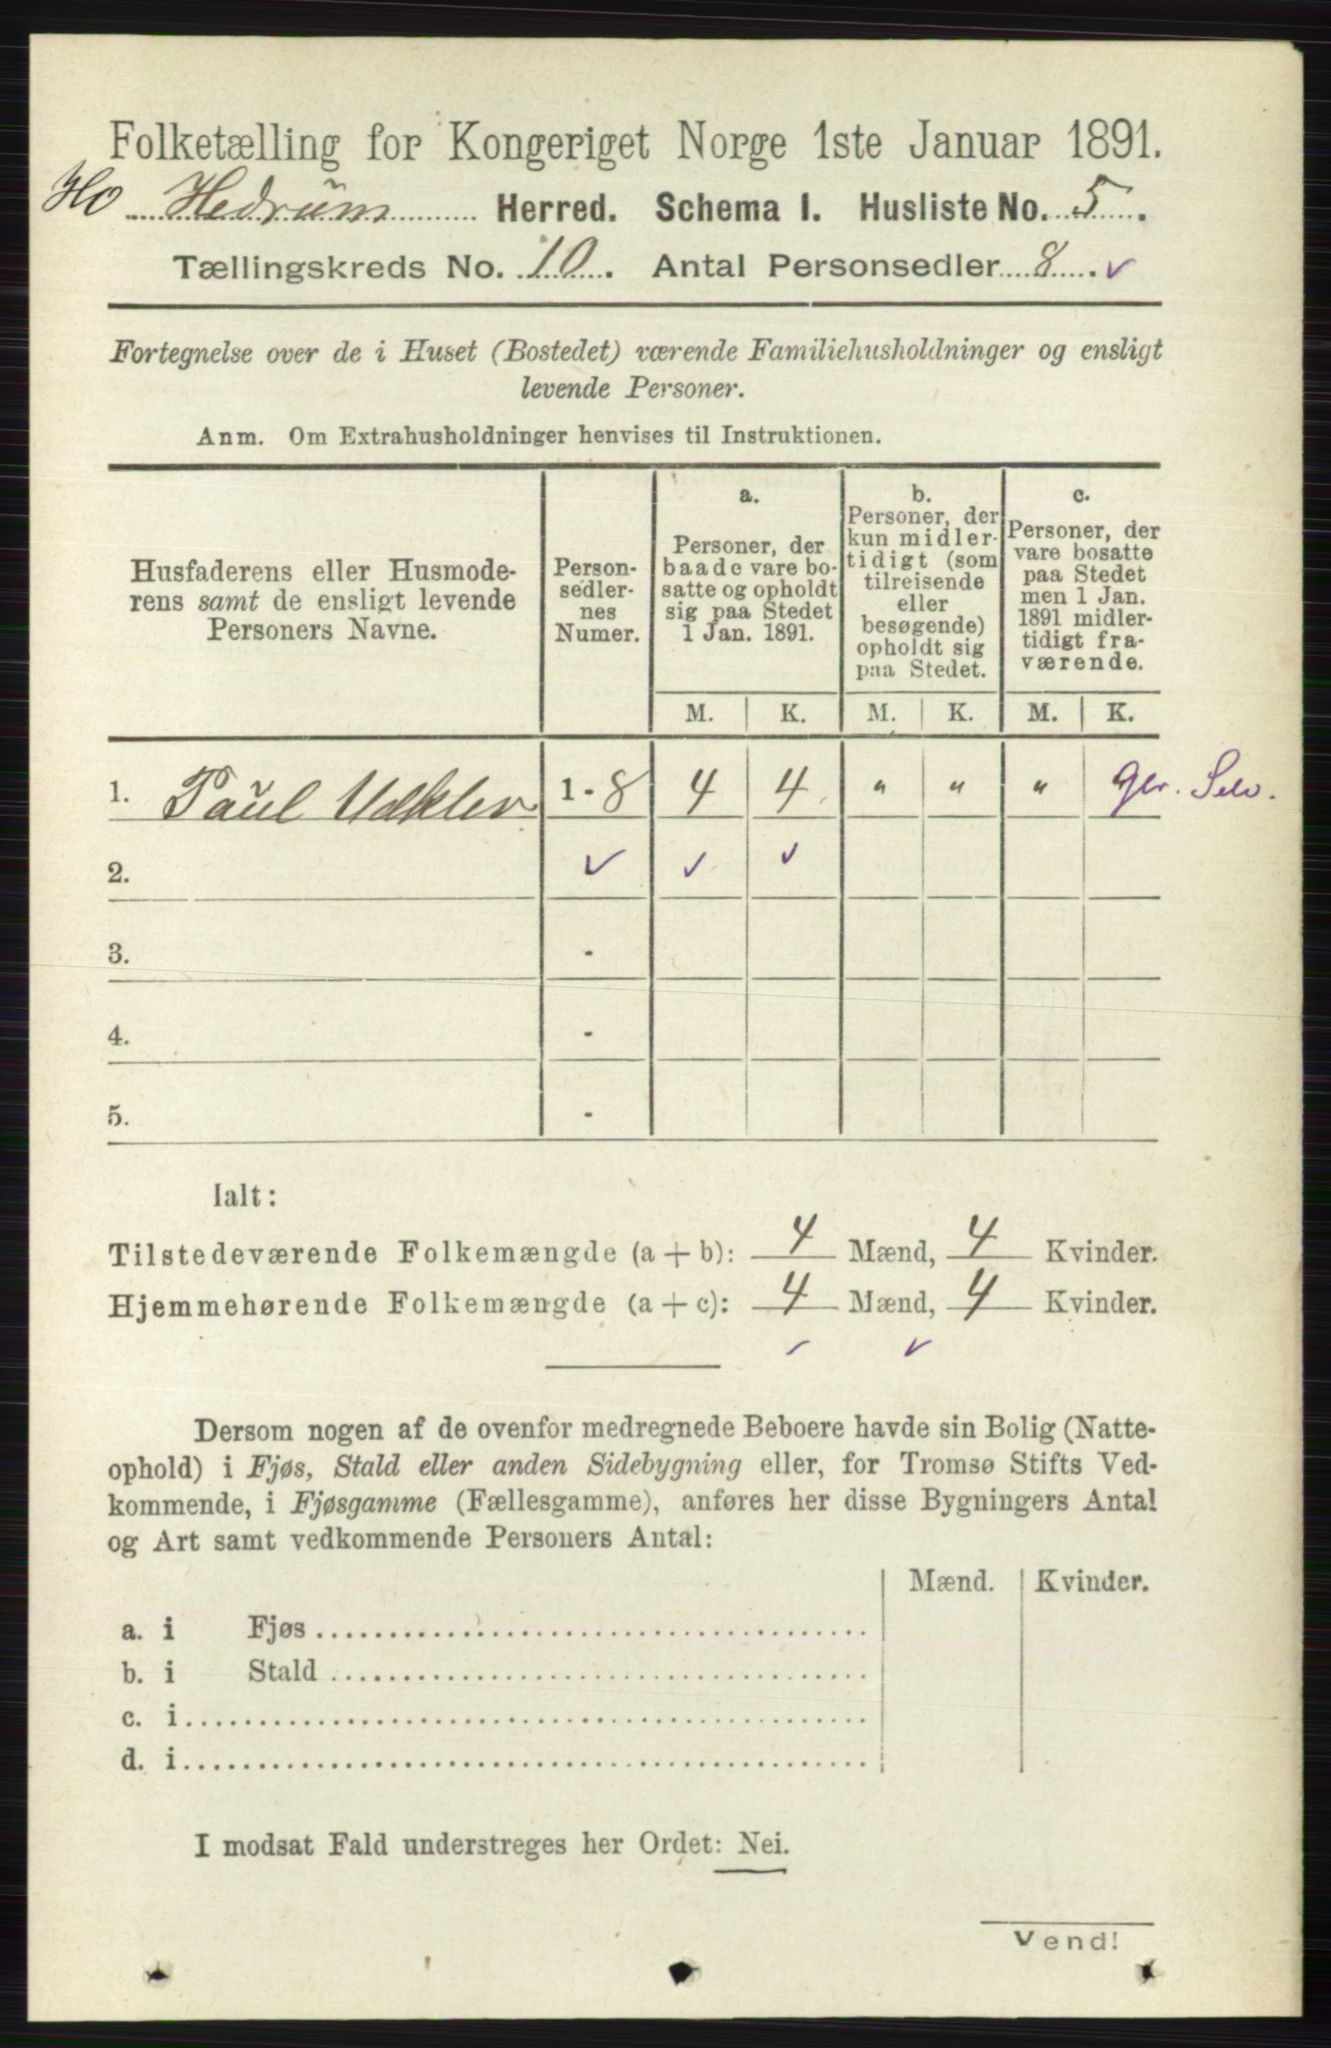 Folketælling for Kongeriget Norge 1ste Januar 1891.
Ho Hedrum Herred. Schema I. Husliste No. 5.
Tællingskreds No. 10. Antal Personsedler 8. ✓
Fortegnelse over de i Huset (Bostedet) værende Familiehusholdninger og ensligt
levende Personer.
Anm. Om Extrahusholdninger henvises til Instruktionen.
Husfaderens eller Husmode-
rens samt de ensligt levende
Personers Navne.
Person-
sedler-
nes
Numer.
a.
Personer, der
baade vare bo-
satte og opholdt
sig paa Stedet
1 Jan. 1891.
b.
Personer, der
kun midler-
tidigt (som
tilreisende
eller
besøgende)
opholdt sig
paa Stedet.
c.
Personer, der
vare bosatte
paa Stedet
men 1 Jan.
1891 midler-
tidigt fra-
værende.
M. K. M. K. M. K.
1. Paul 1-8 4 4 " " "
2. ✓ ✓ ✓
3. -
4. -
5. -
Ialt:
Tilstedeværende Folkemængde (a + b): 4 Mænd, 4 Kvinder.
Hjemmehørende Folkemængde (a + c): 4 Mænd, 4 Kvinder.
✓ ✓
Dersom nogen af de ovenfor medregnede Beboere havde sin Bolig (Natte-
ophold) i Fjøs, Stald eller anden Sidebygning eller, for Tromsø Stifts Ved-
kommende, i Fjøsgamme (Fællesgamme), anføres her disse Bygningers Antal
og Art samt vedkommende Personers Antal:
Mænd. Kvinder.
a. i Fjøs
b. i Stald
c. i
d. i
I modsat Fald understreges her Ordet: Nei.
Vend!